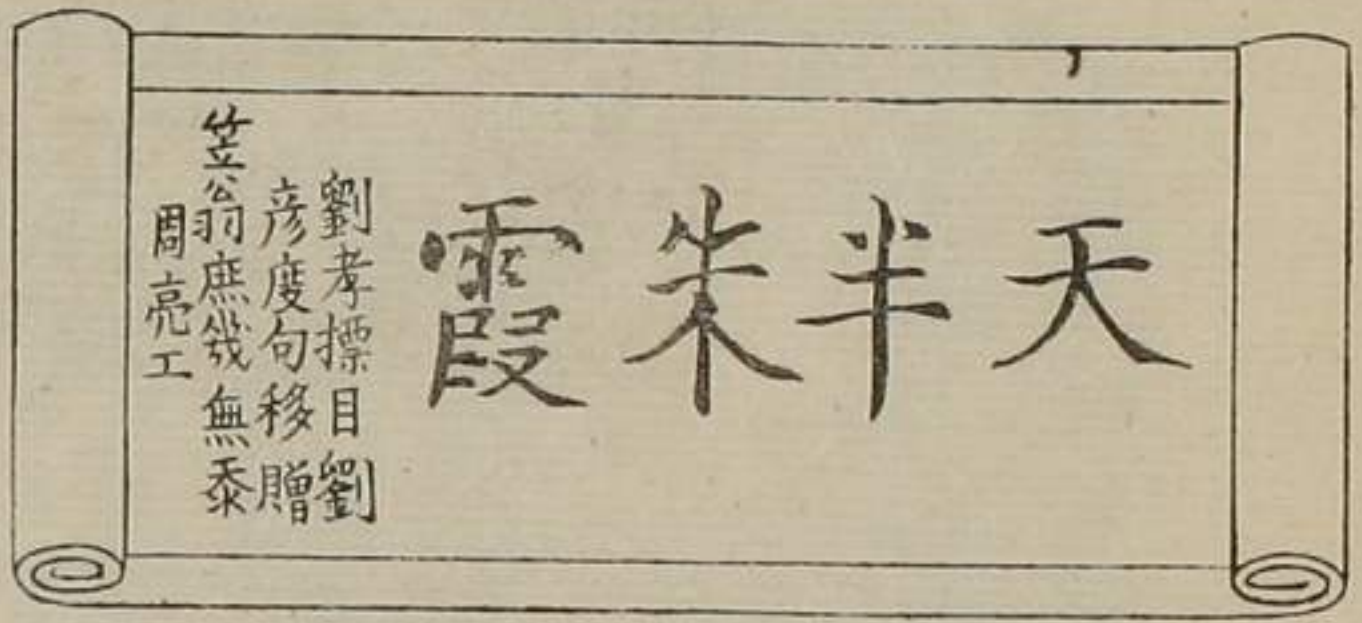 天半朱霞
劉孝摽目劉
彦度句移贈
笠翁庶㡬無忝
周亮工